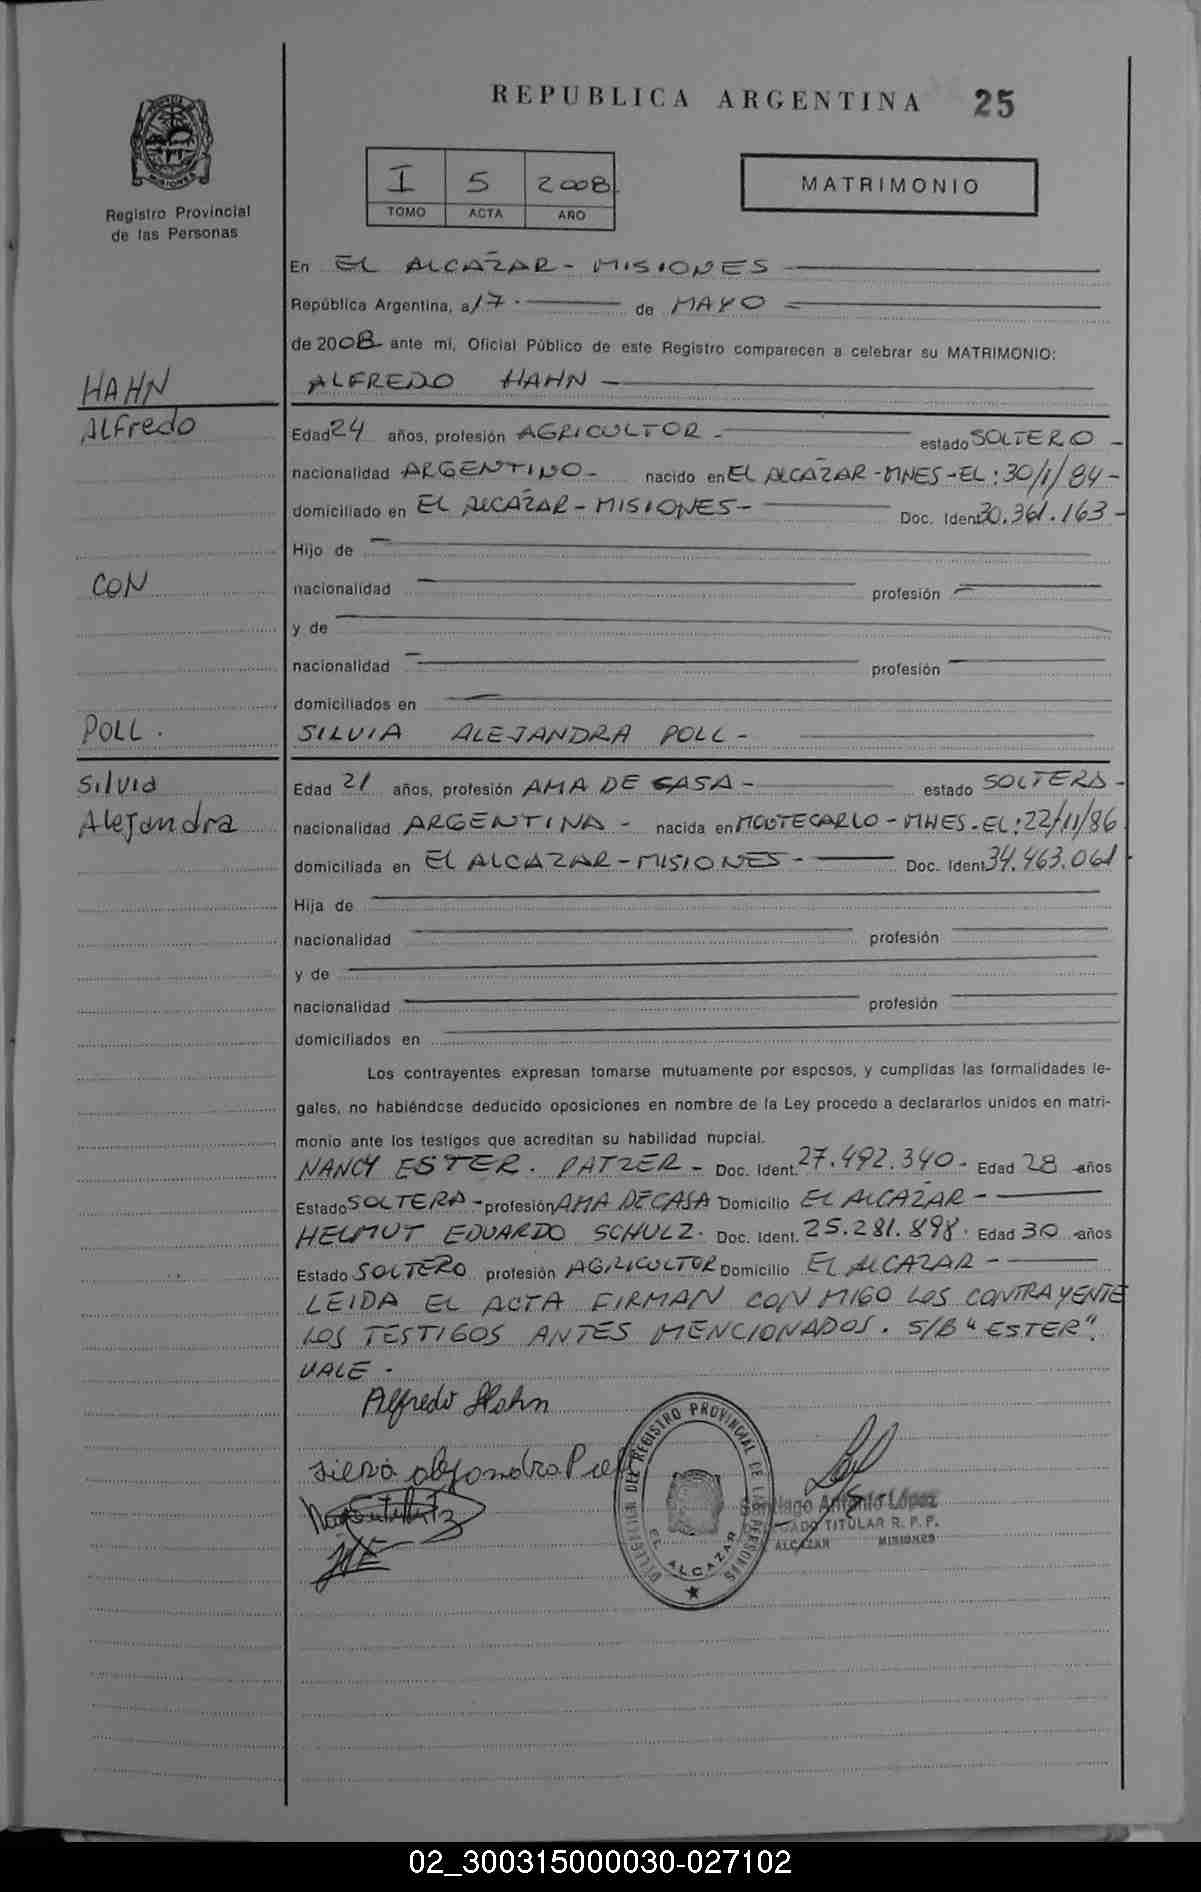 REPUBLICA ARGENTINA 25
MISIONES
Registro Provincial
de las Personas
I 5 2008
TOMO ACTA AÑO
MATRIMONIO
En EL ALCAZAR - MISIONES
República Argentina, a 17 de MAYO
de 2008 ante mí, Oficial Público de este Registro comparecen a celebrar su MATRIMONIO:
HAHN
ALFREDO HAHN -
Alfredo
Edad 24 años, profesión AGRICULTOR - estado SOLTERO -
nacionalidad ARGENTINO - nacido en EL ALCAZAR - MNES - EL: 30/1/84 -
domiciliado en EL ALCAZAR - MISIONES - Doc. Ident. 30.361.163 -
Hijo de
CON
nacionalidad profesión
y de
nacionalidad profesión
domiciliados en
POLL.
SILVIA ALEJANDRA POLL -
Silvia
Edad 21 años, profesión AMA DE CASA - estado SOLTERA -
Alejandra
nacionalidad ARGENTINA - nacida en MONTECARLO - MNES - EL: 22/11/86
domiciliada en EL ALCAZAR - MISIONES - Doc. Ident. 34.463.061
Hija de
nacionalidad profesión
y de
nacionalidad profesión
domiciliados en
Los contrayentes expresan tomarse mutuamente por esposos, y cumplidas las formalidades le-
gales, no habiéndose deducido oposiciones en nombre de la Ley procedo a declararlos unidos en matri-
monio ante los testigos que acreditan su habilidad nupcial.
NANCY ESTER. PATZER - Doc. Ident. 27.492.340 - Edad 28 años
Estado SOLTERA - profesión AMA DE CASA Domicilio EL ALCAZAR -
HELMUT EDUARDO SCHULZ. Doc. Ident. 25.281.898. Edad 30 años
Estado SOLTERO profesión AGRICULTOR Domicilio EL ALCAZAR -
LEIDA EL ACTA FIRMAN CONMIGO LOS CONTRAYENTE
LOS TESTIGOS ANTES MENCIONADOS. S/B "ESTER".
VALE -
Alfredo Hahn
Silvia Alejandra Poll
DELEGACION DEL REGISTRO PROVINCIAL DE LAS PERSONAS
EL ALCAZAR
Santiago Antonio López
TITULAR R. P. P.
ALCAZAR MISIONES
02_300315000030-027102